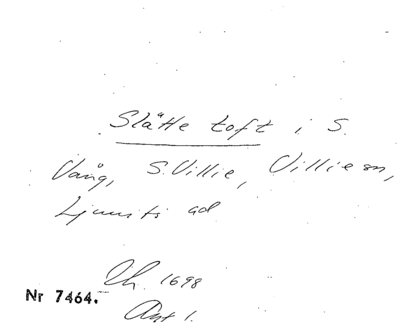 Slätte toft i S.
Vång, S. Villie, Villie sn,
Ljunits hd
Lh. 1698
Nr 7464.
Akt 1.